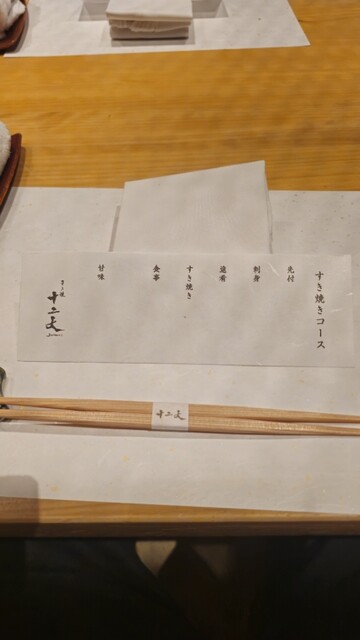 すき焼きコース
先付
刺身
進肴
すき焼き
食事
甘味
十二天
十二天